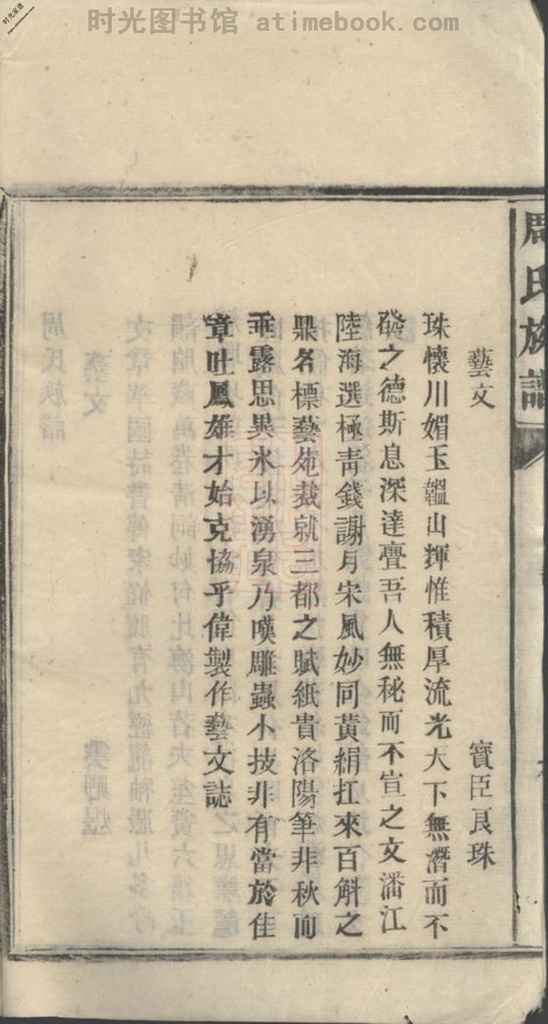 时光图书馆 atimebook.com
时光家谱
周氏族譜
藝文
寶臣良珠
珠懷川媚玉韞山輝惟積厚流光天下無潛而不
發之德斯息深達亹吾人無秘而不宣之文潘江
陸海選極青錢謝月宋風妙同黃絹扛來百斛之
鼎名標藝苑裁就三都之賦紙貴洛陽筆非秋而
垂露思異水以湧泉乃嘆雕蟲小技非有當於佳
章吐鳳雄才始克協乎偉製作藝文誌